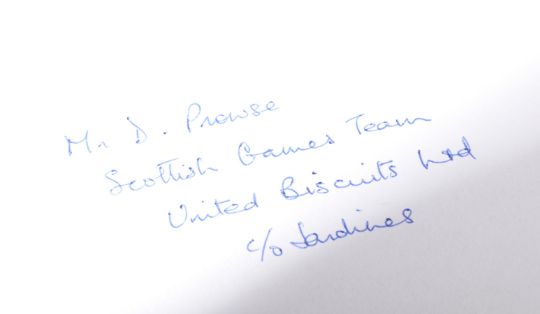 Mr D. Prowse
Scottish Games Team
United Biscuits Ltd
c/o Jardines